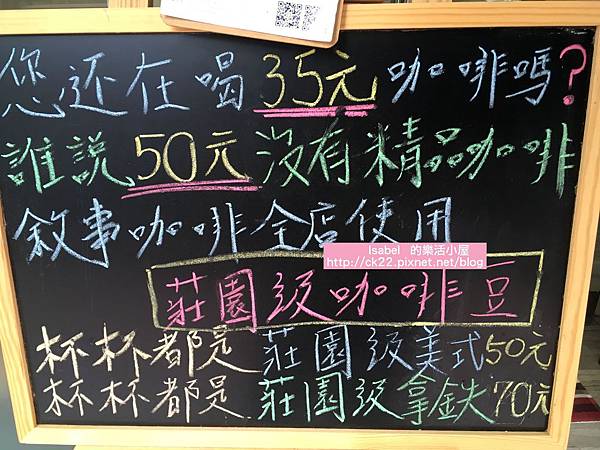 您还在喝35元咖啡嗎?
誰説50元没有精品咖啡
敘事咖啡全店使用
Isabel 的樂活小屋
http://ck22.pixnet.net/blog
莊園级咖啡豆
杯杯都是 莊園级美式50元
杯杯都是 莊園级拿鉄70元